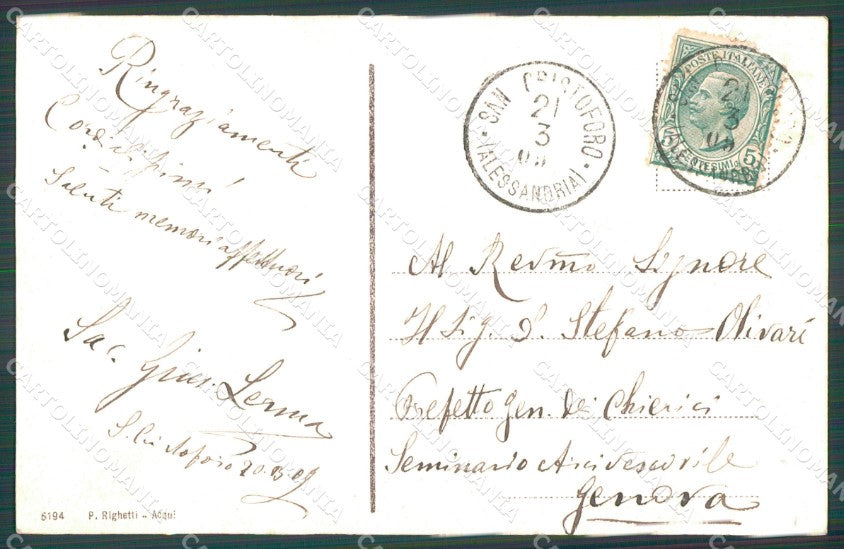 Ringraziamenti
Cordialissimi!
Saluti memori affettuosi
Sac. Gius. Lerma
S. Cristoforo 20-3-09
5194 P. Righetti - Acqui
SAN CRISTOFORO
21
3
09
(ALESSANDRIA)
POSTE ITALIANE
21
3
09
CENTESIMI 5
Al Revmo Signore
Il Sig. D. Stefano Olivari
Prefetto Gen. dei Chierici
Seminario Arcivescovile
Genova
CARTOLINOMANIA